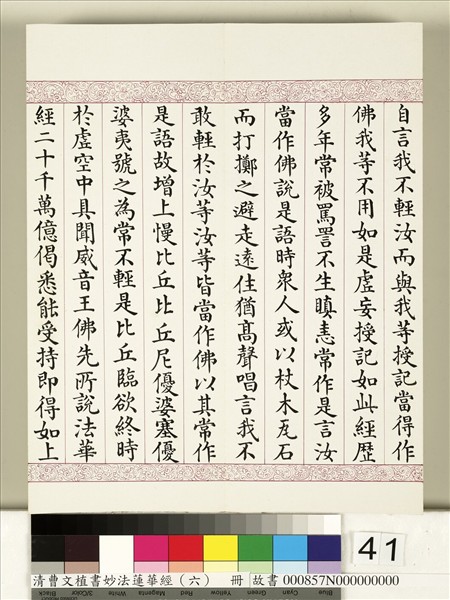 自言我不輕汝而與我等授記當得作
佛我等不用如是虛妄授記如此經歷
多年常被罵詈不生瞋恚常作是言汝
當作佛說是語時眾人或以杖木瓦石
而打擲之避走遠住猶高聲唱言我不
敢輕於汝等汝等皆當作佛以其常作
是語故增上慢比丘比丘尼優婆塞優
婆夷號之為常不輕是比丘臨欲終時
於虛空中具聞威音王佛先所說法華
經二十千萬億偈悉能受持即得如上
41
清曹文植書妙法蓮華經（六） 冊 故書 000857N000000000
Blue Cyan Green Yellow Red Magenta White 3/Color Black